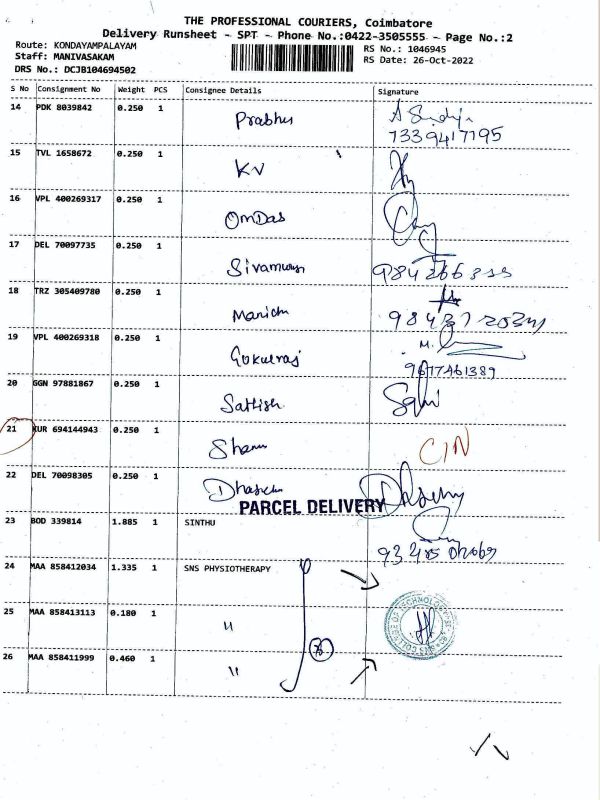 THE PROFESSIONAL COURIERS, Coimbatore
Delivery Runsheet - SPT - Phone No.:0422-3505555 - Page No.:2
Route: KONDAYAMPALAYAM
RS No.: 1046945
Staff: MANIVASAKAM
RS Date: 26-Oct-2022
DRS No.: DCJB104694502
S No Consignment No Weight PCS Consignee Details Signature
14 PDK 8039842 0.250 1 Prabhu
7339417195
15 TVL 1658672 0.250 1 KV
16 VPL 400269317 0.250 1 OmDas
17 DEL 70097735 0.250 1
18 TRZ 305409780 0.250 1
19 VPL 400269318 0.250 1 Gokulraj M.
9677461389
20 GGN 97881867 0.250 1 Sathish
21 KUR 694144943 0.250 1 CIN
22 DEL 70098305 0.250 1
PARCEL DELIVERY
23 BOD 339814 1.885 1 SINTHU
24 MAA 858412034 1.335 1 SNS PHYSIOTHERAPY
25 MAA 858413113 0.180 1 "
26 MAA 858411999 0.460 1 "